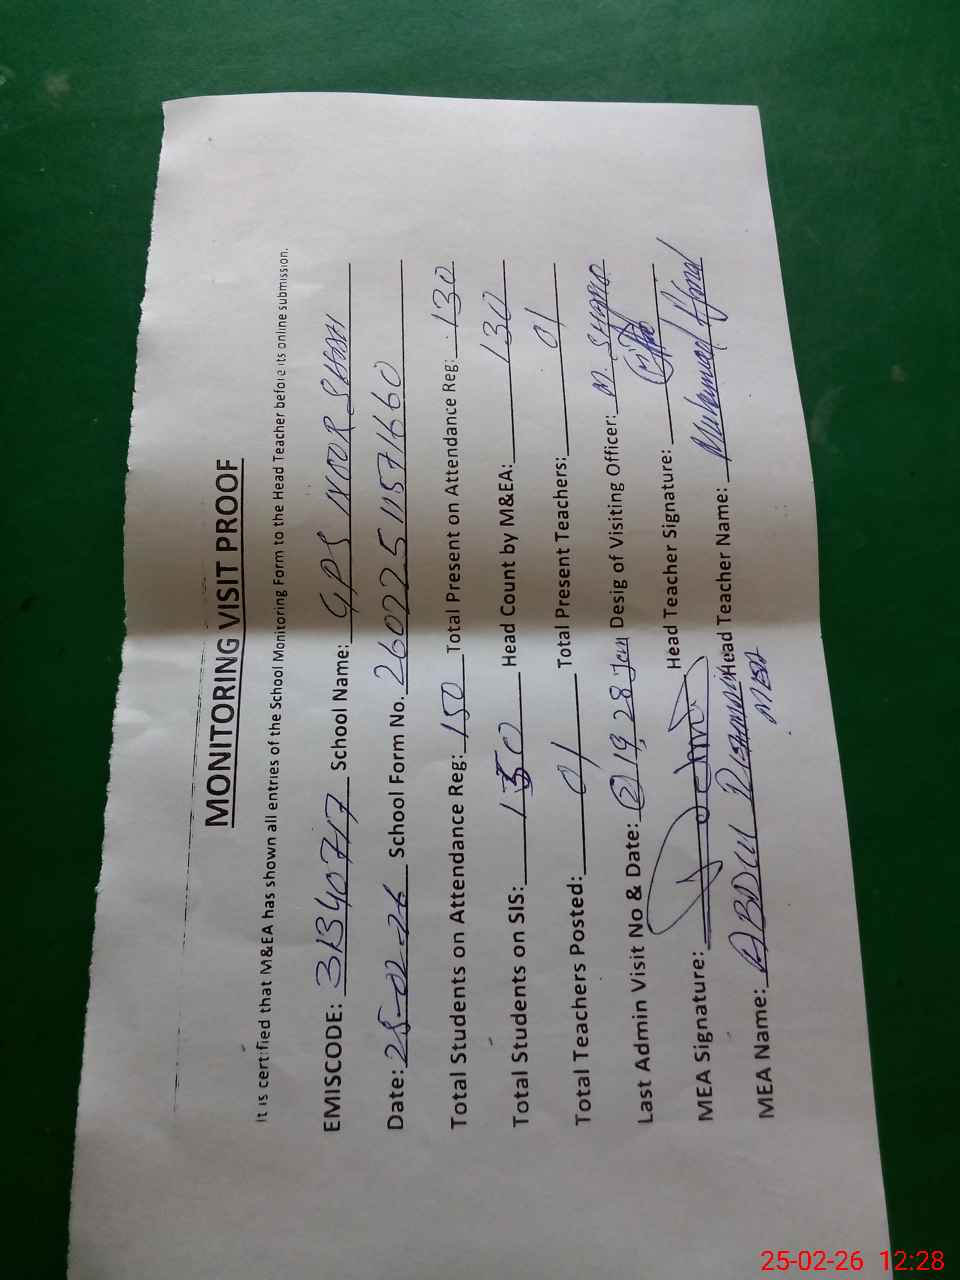 MONITORING VISIT PROOF
It is certified that M&EA has shown all entries of the School Monitoring Form to the Head Teacher before its online submission.
EMISCODE: 31340717 School Name: GPS NOOR SHAH
Date: 25-02-26 School Form No. 26022511571660
Total Students on Attendance Reg: 150 Total Present on Attendance Reg: 130
Total Students on SIS: 150 Head Count by M&EA: 130
Total Teachers Posted: 01 Total Present Teachers: 01
Last Admin Visit No & Date: (2) 19, 28 Jan Desig of Visiting Officer: M.
MEA Signature: Head Teacher Signature:
MEA Name: ABDUL Head Teacher Name: Muhammad
MEA
25-02-26 12:28